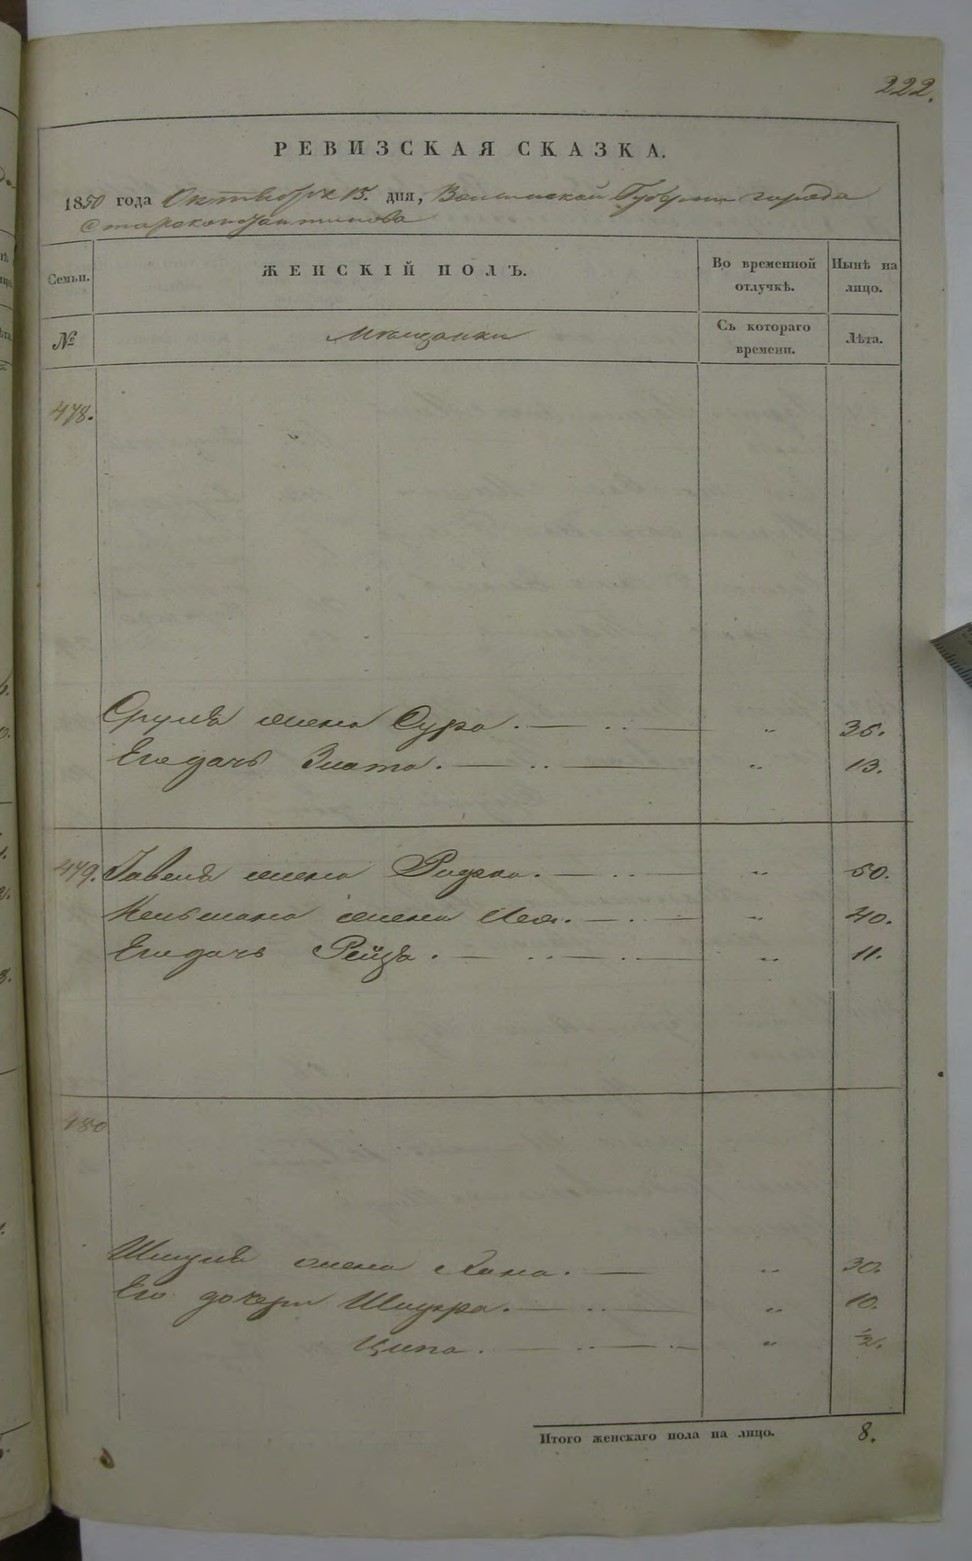 222.
РЕВИЗСКАЯ СКАЗКА.
1850 года Октября 15. дня, Волынской Губернии города
Староконстантинова
Семьи. ЖЕНСКІЙ ПОЛЪ. Во временной отлучкѣ. Нынѣ на лицо.
№ Мѣщанки Съ котораго времени. Лѣта.
478.
Сруля жена Сура. " 35.
Его дочь Злата. " 13.
479. жена " 50.
жена Лея. " 40.
Его дочь Рейза. " 11.
480
Шмуля жена Хана. " 30.
Его дочери Шифра. " 10.
Ципа. " ½.
Итого женскаго пола на лицо. 8.